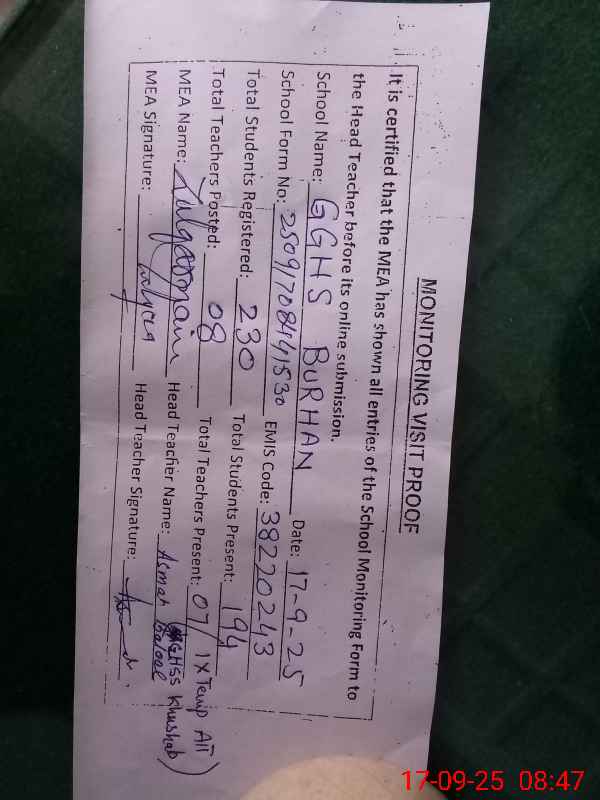 MONITORING VISIT PROOF
It is certified that the MEA has shown all entries of the School Monitoring Form to
the Head Teacher before its online submission.
School Name: GGHS BURHAN Date: 17-9-25
School Form No: EMIS Code: 38220243
Total Students Registered: 230 Total Students Present: 194
Total Teachers Posted: 08 Total Teachers Present: 07/ 1 X Temp Att
MEA Name: Head Teacher Name: Asmah GHSS Khushab)
MEA Signature: Head Teacher Signature:
17-09-25 08:47